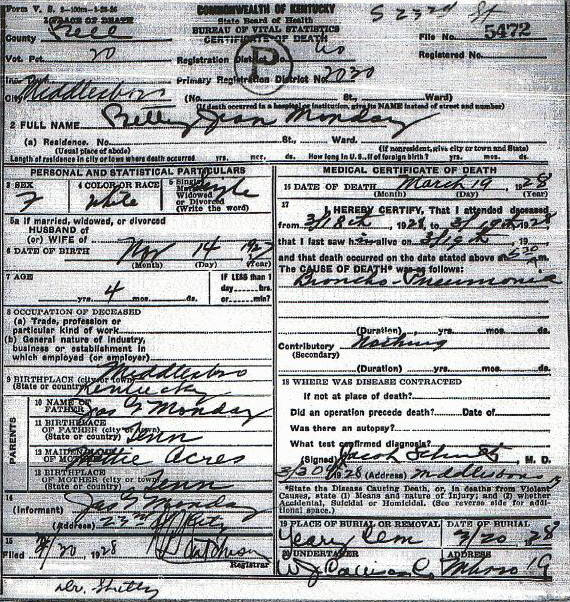 Form V. S. 2-100m-1-28-26
COMMONWEALTH OF KENTUCKY
523rd St
State Board of Health
BUREAU OF VITAL STATISTICS
1 PLACE OF DEATH
CERTIFICATE OF DEATH
County Bell
File No. 5472
Vot. Pct. 20
Registration District No
Registered No.
Primary Registration District No 2030
City Middlesboro (No. St., Ward)
(If death occurred in a hospital or institution, give its NAME instead of street and number)
2 FULL NAME Bettey Jean Monday
(a) Residence. No. St., Ward.
(Usual place of abode) (If nonresident, give city or town and State)
Length of residence in city or town where death occurred yrs. mos. ds. How long in U. S., if of foreign birth? yrs. mos. ds.
PERSONAL AND STATISTICAL PARTICULARS
3 SEX F
4 COLOR OR RACE white
5 Single, Married, Widowed or Divorced (Write the word) Single
5a If married, widowed, or divorced
HUSBAND of
(or) WIFE of
6 DATE OF BIRTH Nov 14 1927
(Month) (Day) (Year)
7 AGE
IF LESS than 1 day hrs. or min?
yrs. 4 mos. ds.
8 OCCUPATION OF DECEASED
(a) Trade, profession or particular kind of work
(b) General nature of industry, business or establishment in which employed (or employer)
9 BIRTHPLACE (city or town) Middlesboro
(State or country) Kentucky
PARENTS
10 NAME OF FATHER Jas G Monday
11 BIRTHPLACE OF FATHER (city or town)
(State or country) Tenn
12 MAIDEN NAME OF MOTHER Acres
13 BIRTHPLACE OF MOTHER (city or town)
(State or country) Tenn
14
(Informant) Jas G Monday
(Address) 23rd St City
15
Filed 3/20, 1928
Registrar
MEDICAL CERTIFICATE OF DEATH
16 DATE OF DEATH March 19, 1928
(Month) (Day) (Year)
17
I HEREBY CERTIFY, That I attended deceased
from 3/18th, 1928, to 3/19th 1928,
that I last saw h alive on 3/19th, 1928,
and that death occurred on the date stated above at 5:20 m.
The CAUSE OF DEATH* was as follows:
Broncho-Pneumonia
(Duration) yrs. mos. ds.
Contributory Nothing
(Secondary)
(Duration) yrs. mos. ds.
18 WHERE WAS DISEASE CONTRACTED
If not at place of death?
Did an operation precede death? Date of
Was there an autopsy?
What test confirmed diagnosis?
(Signed) Jacob Schultz M. D.
3/20, 1928 (Address) Middlesboro
*State the Disease Causing Death, or, in deaths from Violent Causes, state (1) Means and nature of Injury; and (2) whether Accidental, Suicidal or Homicidal. (See reverse side for additional space.)
19 PLACE OF BURIAL OR REMOVAL
Yeary Cem
DATE OF BURIAL
3/20, 28
20 UNDERTAKER
ADDRESS